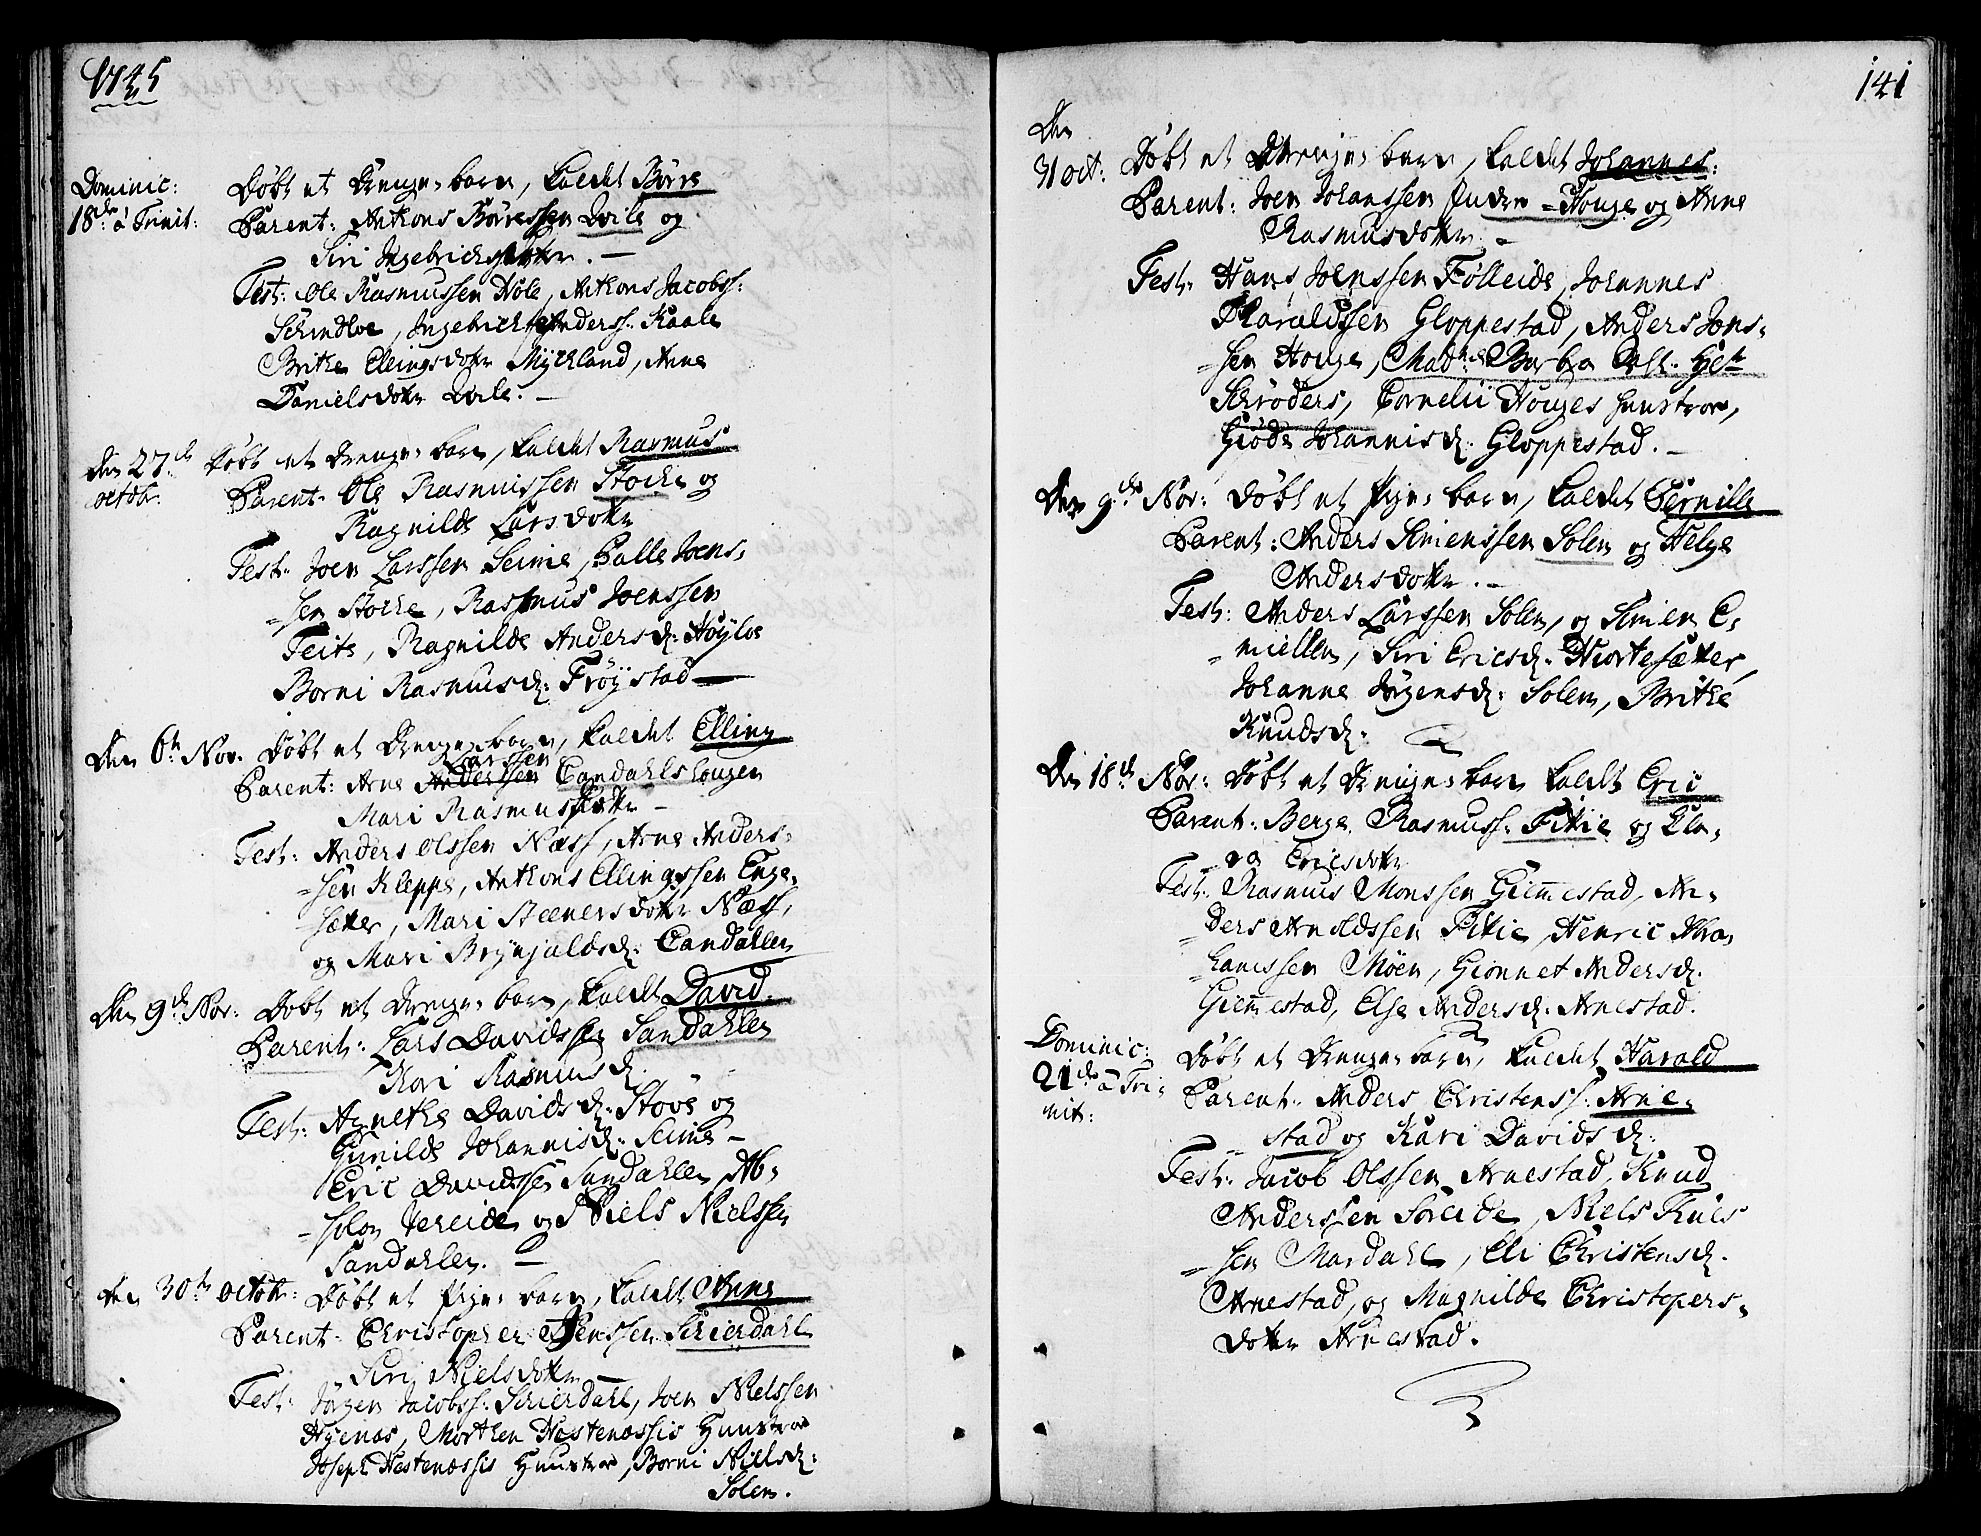 1745
Dominic: Døbt et Drenge barn, kaldet Børre
18de à Trinit: Parent: Anthons Børressen Qvile og
Siri Ingebrichsdotter. —
Test: Ole Rasmussen Høle, Anthons Jacobss:
Schindloe, Ingebricht Anderss: Kaale
Brithe Ellingsdotr Myckland, Anne
Danielsdotr Qvile. —
Den 27de Døbt et Drenge barn, kaldet Rasmus
octobr. Parent: Ole Rasmussen Stocke og
Ragnilde Larsdotr
Test: Joen Larssen Seime, Palle Joens-
=sen Stocke, Rasmus Joenssen
Teite, Ragnilde Andersd: Høyloe
Borni Rasmusd: Frøystad —
Den 6te Nov. Døbt et Drenge barn, kaldet Elling
Larssen
Parent: Arne Anderssen Candahlshougen
Mari Rasmusdotr —
Test: Anders Olssen Næss, Arne Anders-
=sen Kleppe, Anthons Ellingssen Enge-
sætter, Mari Steenersdotr Næss,
og Mari Brynjulds d: Candahlen
Den 9de Nov: Døbt et Drenge barn, kaldet David.
Parent: Lars Davidssen Sandahlen
Kari Rasmusd.
Test: Agnethe Davidsd: Støve og
Gunilde Johannisd: Seime —
Eric Davidssen Sandahlen Ab-
=solon Jereide og Niels Nielssen
Sandahlen. —
Den 30te octobr: Døbt et Pige barn, kaldet Anne
Parent: Christopher Jenssen Schierdahl
Siri Nielsdotr —
Test: Jørgen Jacobss: Schierdahl, Joen Nielssen
Hyenæs, Morthen Hestenæssis Huustroe
Joseph Hestenæssis Huustroe, Borni Nielsd:
Solem.
141
Den
31 oct: Døbt et Drenge barn, kaldet Johannes:
Parent: Joen Johanssen Inden =Houge og Anne
Rasmusdotr. —
Test: Hans Joenssen Følleide, Johannes
Haraldssen Gloppestad, Anders Jons-
=sen Houge, Madme Barbra Sal: Hr
Schrøders, Cornelii Houges huustroe,
Giøde Johannisd: Gloppestad. —
Den 9de Nov: Døbt et Pige barn, kaldet Pernille
Parent: Anders Simenssen Solem og Helge
Andersdotr. —
Test: Anders Larssen Solem, og Simen E-
=miellem, Siri Ericsd. Hiortesætter,
Johanne Jørgensd: Solem, Brithe
Knudsd:
Den 18de Nov: Døbt et Drenge barn kaldet Eric
Parent: Berge Rasmuss: Fitie og Kla-
=ra Ericsdotr
Test: Rasmus Monssen Giemmestad, An-
=ders Arnoldssen Fitie, Henric Abra-
=hamssen Møen, Gionnet Andersd.
Giemmestad, Else Andersd: Arnestad.
Dominic: Døbt et Drenge barn, kaldet Harald
21de à Tri- Parent: Anders Christenss: Arne-
nit: stad og Kari Davids d:
Test: Jacob Olssen Arnestad, Knud
Anderssen Søreide, Niels Knus
=sen Mardahl, Eli Christensd.
Arnestad, og Magnilde Christopers-
dotr Arnestad.